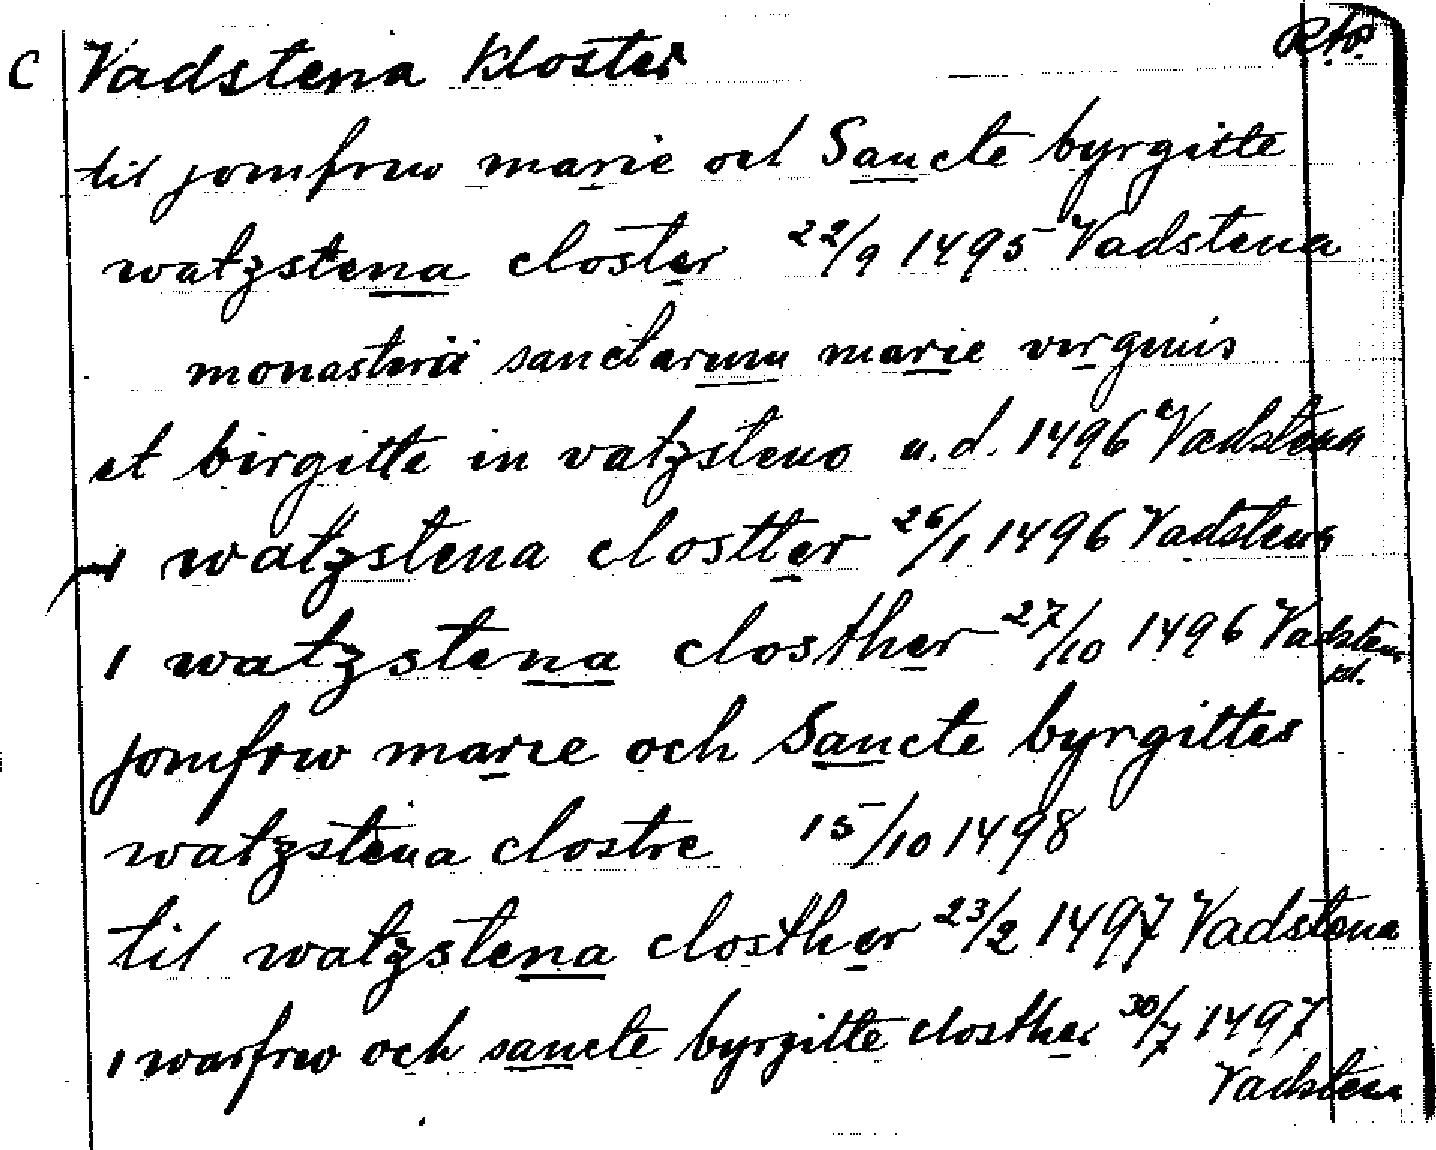 C Vadstena Kloster Rto.
til jomfrw marie och Sancte byrgitte
watzstena closter 22/9 1495 Vadstena
monasterii sanctarum marie virginis
et birgitte in vatzsteno u.d. 1496 Vadstena
I watzstena clostter 26/1 1496 Vadstena
I watzstena closther 27/10 1496 Vadstena
kl.
jomfrw marie och Sancte byrgittes
watzstena clostre 15/10 1498
til watzstena closther 23/2 1497 Vadstena
I warfrw och sancte byrgitte closther 30/7 1497
Vadstena